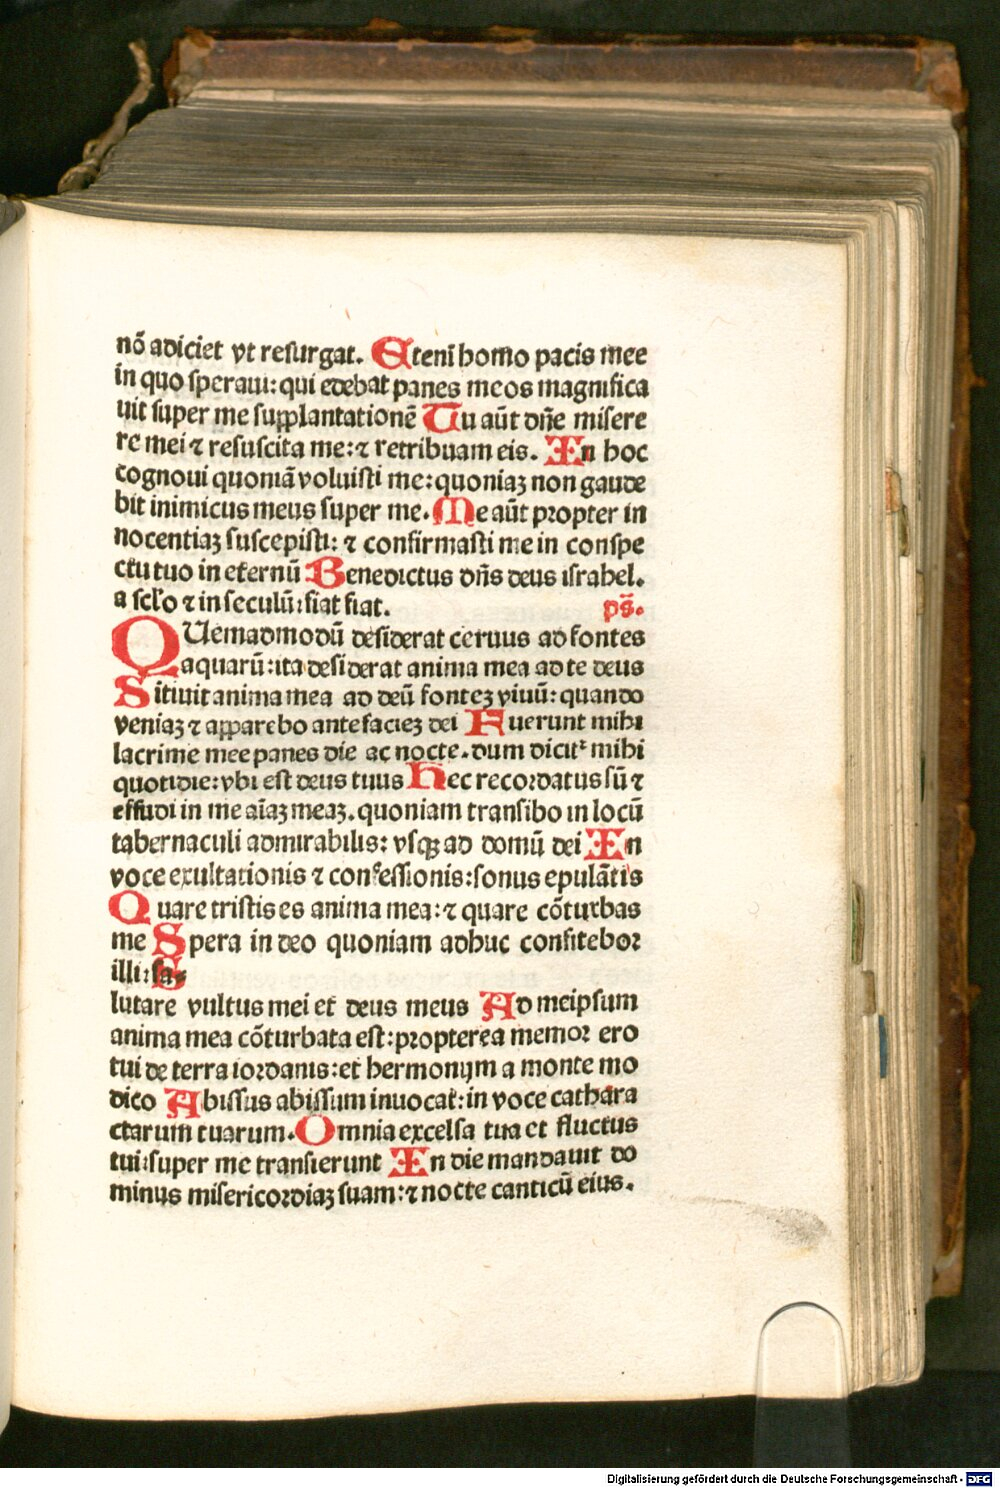 nō adiciet vt resurgat. Eteni homo pacis mee
in quo speraui: qui edebat panes meos magnifica
uit super me supplantationē Tu aūt dn̄e misere
re mei ⁊ resuscita me: ⁊ retribuam eis. In hoc
cognoui quoniā voluisti me: quoniaꝫ non gaude
bit inimicus meus super me. Me aūt propter in
nocentiaꝫ suscepisti: ⁊ confirmasti me in conspe
ctu tuo in eternū Benedictus dn̄s deus israhel.
a scl'o ⁊ in seculū: fiat fiat. ps̄.
QUemadmodū desiderat ceruus ad fontes
aquarū: ita desiderat anima mea ad te deus
Sitiuit anima mea ad deū fonteꝫ viuū: quando
veniaꝫ ⁊ apparebo ante facieꝫ dei Fuerunt mihi
lacrime mee panes die ac nocte. dum dicit᷑ mihi
quotidie: vbi est deus tuus Hec recordatus sū ⁊
effudi in me aīaꝫ meaꝫ. quoniam transibo in locū
tabernaculi admirabilis: vsqꝫ ad domū dei In
voce exultationis ⁊ confessionis: sonus epulātis
Quare tristis es anima mea: ⁊ quare cōturbas
me Spera in deo quoniam adhuc confitebor
illi: sa-
lutare vultus mei et deus meus Ad meipsum
anima mea cōturbata est: propterea memor ero
tui de terra iordanis: et hermonijm a monte mo
dico Abissus abissum inuocat: in voce cathara
ctarum tuarum. Omnia excelsa tua et fluctus
tui: super me transierunt In die mandauit do
minus misericordiaꝫ suam: ⁊ nocte canticū eius.
Digitalisierung gefördert durch die Deutsche Forschungsgemeinschaft - DFG